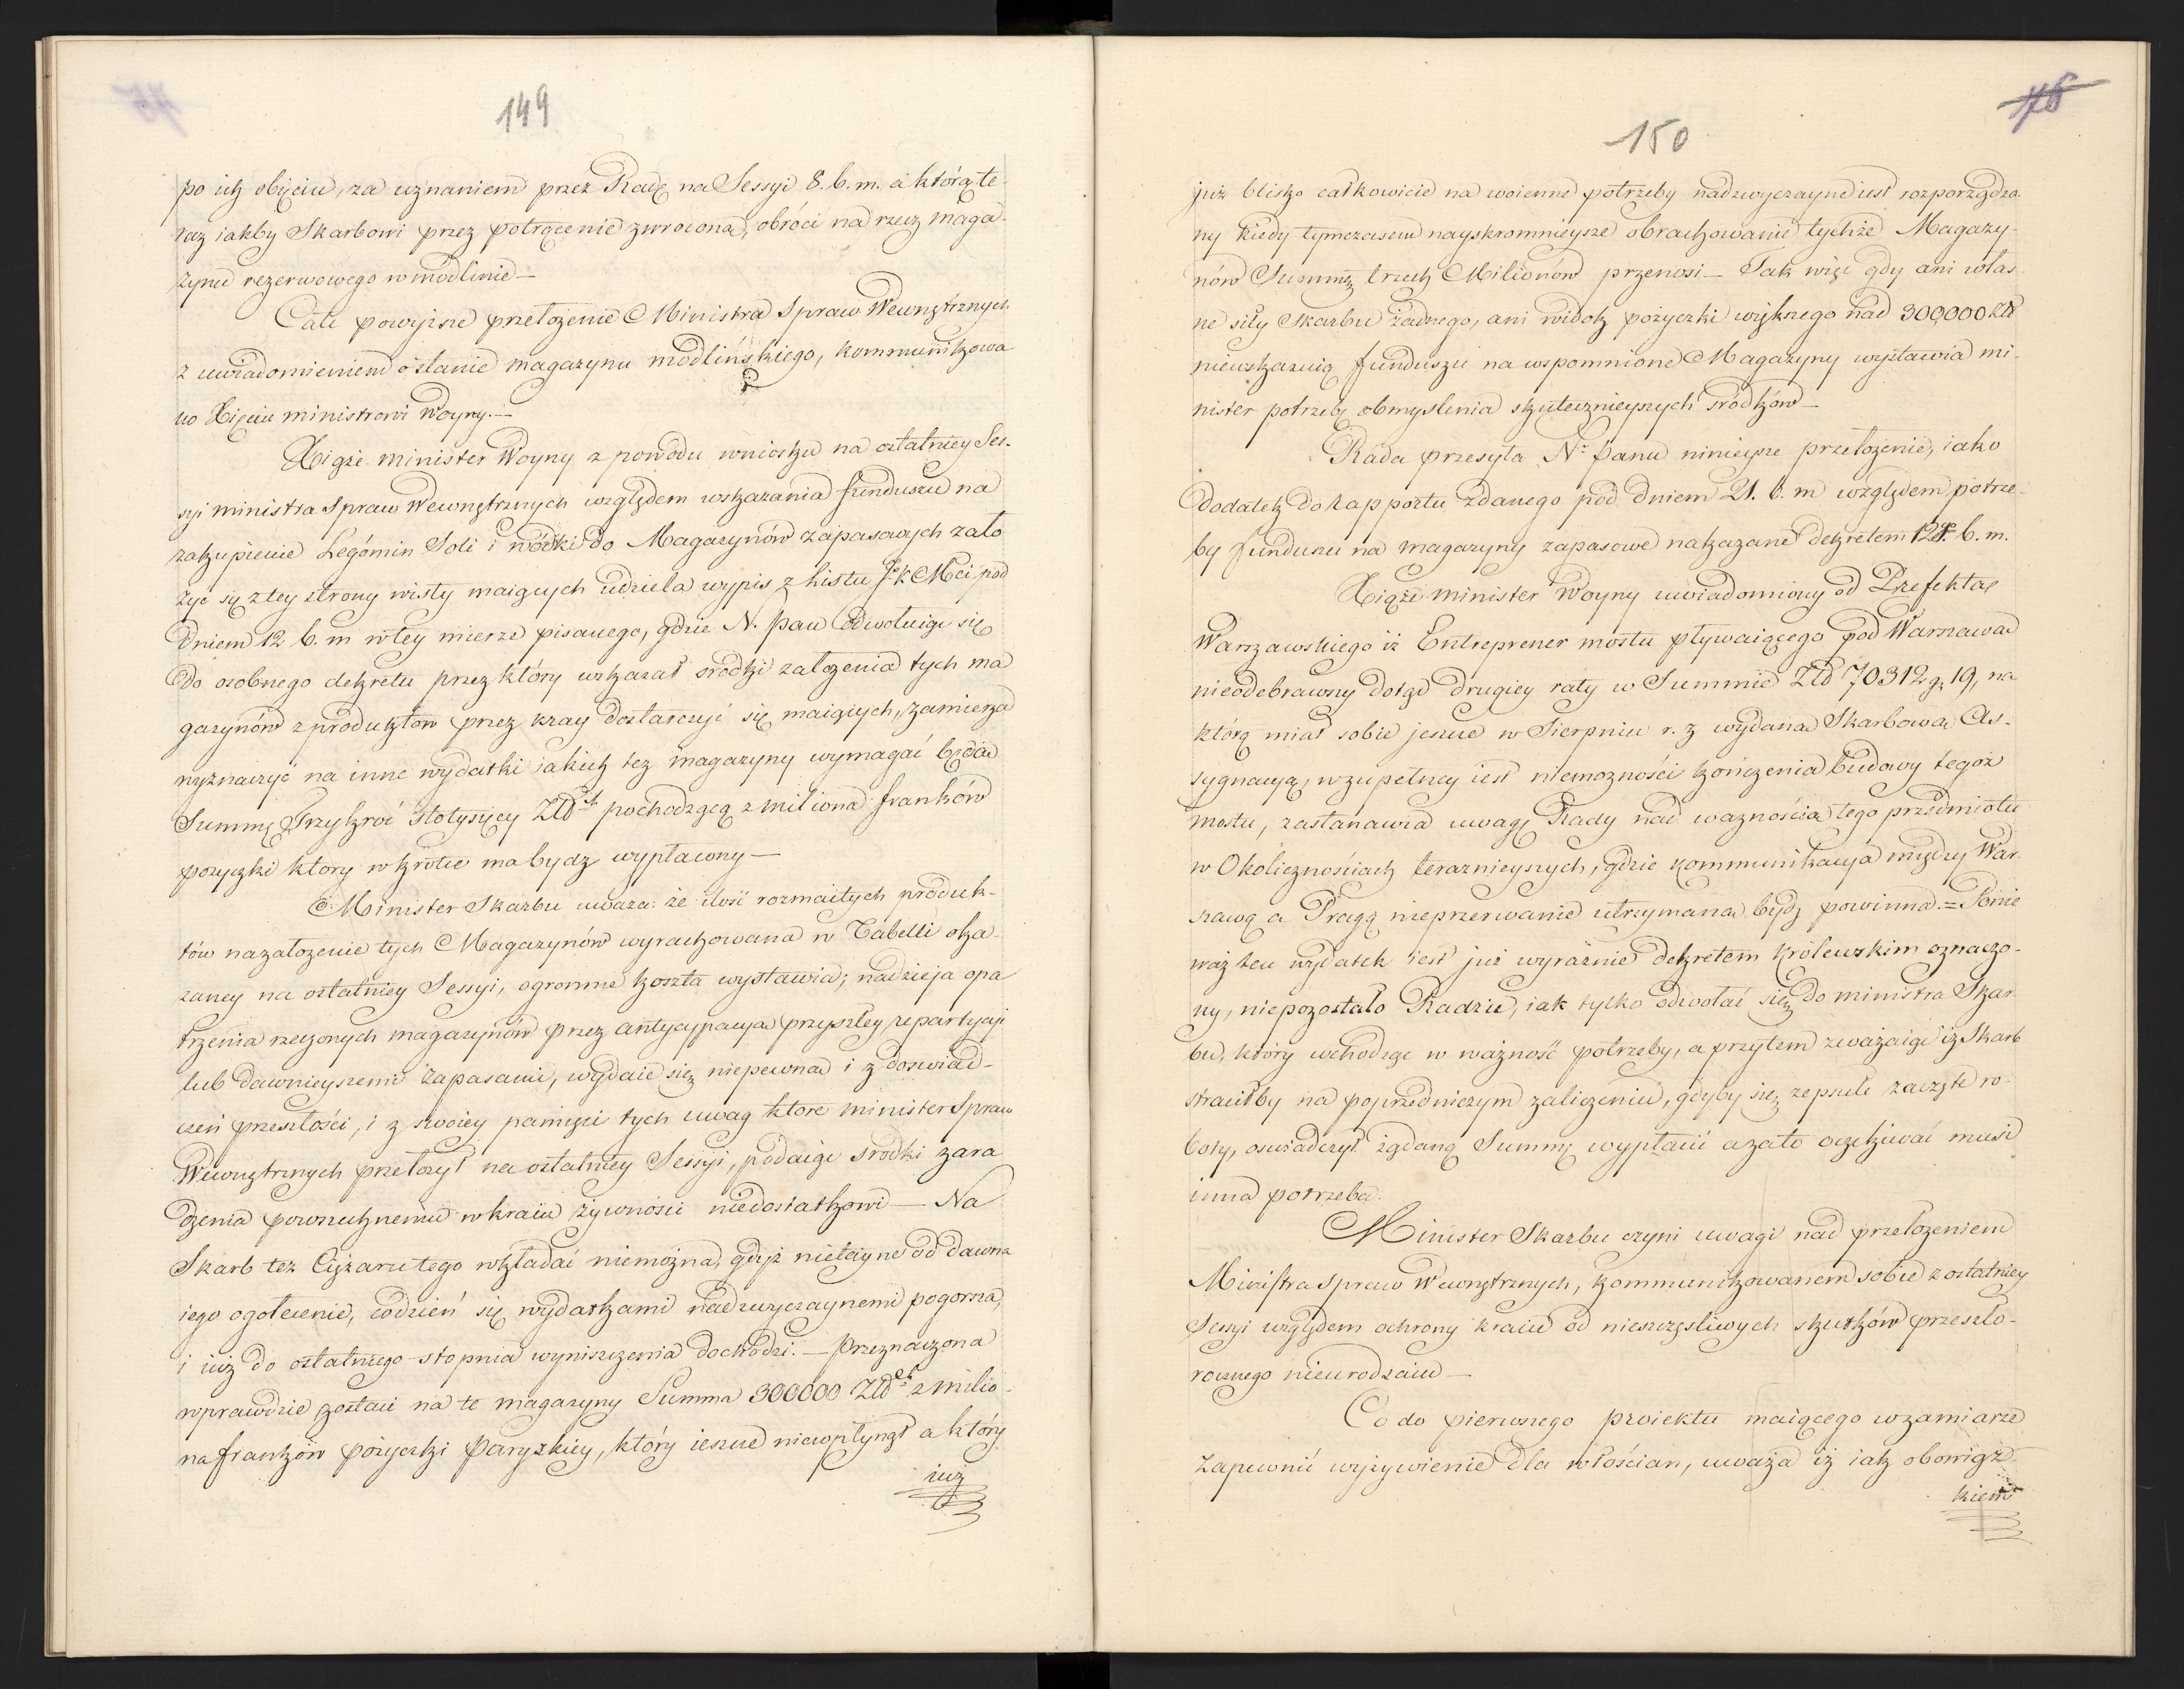 149
po ich objęciu, za uznaniem przez Radę na Sessyi 8. b. m. a którą te-
raz iakby Skarbowi przez potrącenie zwrocona, obróci na rzecz maga-
zynu rezerwowego w modlinie —
Całe powyższe przełożenie Ministra Spraw Wewnętrznych
z uwiadomieniem o stanie magazynu modlińskiego, kommunikowa
no Xięciu ministrowi Woyny. —
Xiąże minister Woyny z powodu wniosku na ostatniey Ses-
syi ministra Spraw Wewnętrznych względem wskazania funduszu na
zakupienie Legómin Soli i wódki do Magazynów zapasowych zało
żyć się z tey strony wisły maiących udziela wypis z listu J. K Mci pod
Dniem 12 b. m w tey mierze pisanego, gdzie N. Pan odwołuiąc się
do osobnego dekretu przez który wskazał srodki założenia tych ma
gazynów z produktow przez kray dostarczyć się maiących, zamierza
wyznaczyć na inne wydatki iakich tez magazyny wymagać będą
Summę Trzykroć stotysięcy Złł pochodzącą z miliona franków
pozyczki ktory wkrótce ma bydz wypłacony —
Minister Skarbu uwaza: że ilość rozmaitych produk-
tów na założenie tych Magazynów wyrachowana w Tabelli oka-
zaney na ostatniey Sessyi, ogromne koszta wystawia; nadzieja opa
trzenia rzeczonych magazynów przez antycypacyą przyszłey repartycyi
lub dawnieyszemi zapasami, wydaie się niepewna i z doswiad-
czeń przeszłości, i z swoiey pamięci tych uwag ktore minister Spraw
Wewnętrznych przełożył na ostatniey Sessyi, podaiąc srodki zara
dzenia powszechnemu w kraiu żywności niedostatkowi — Na
Skarb tez Ciężaru tego wkładać niemożna, gdyż nietayne od dawna
iego ogołocenie, codzień się wydatkami nadzwyczaynemi pogorsza,
i iuz do ostatniego stopnia wyniszczenia dochodzi. — Przeznaczona
wprawdzie zostaie na te magazyny Summa 300000 Złł z milio-
na franków pożyczki Paryzkiey, który ieszcze niewpłynął a który
iuz
76
150
już blisko całkowicie na woienne potrzeby nadzwyczayne iest rozporządzo
ny kiedy tymczasem nayskromnieysze obrachowanie tychże Magazy-
nów Summę trzech Milionów przenosi — Tak więc gdy ani włas-
ne siły Skarbu żadnego, ani widok pożyczki większego nad 300,000 złł
niewskazuią funduszu na wspomnione Magazyny wystawia mi-
nister potrzebę obmyslenia skutecznieyszych srodków —
Rada przesyła N. Panu ninieysze przełożenie, iako
Dodatek do Rapportu zdanego pod dniem 21. b. m względem potrze-
by funduszu na magazyny zapasowe nakazane dekretem 12 b. m.
Xiąże minister Woyny uwiadomiony od Prefekta
Warszawskiego iż Entreprener mostu pływaiącego pod Warszawą
nieodebrawszy dotąd drugiey raty w Summie Złł 70312 g. 19, na
którą miał sobie jeszcze w Sierpniu r. z wydaną Skarbową As-
sygnacyą, w zupełney iest niemozności kończenia budowy tegoż
mostu, zastanawia uwagę Rady nad waznoścìą tego przedmiotu
w Okolicznościach teraznieyszych, gdzie kommunikacya między War-
szawą a Pragą nieprzerwanie utrzymana bydź powinna = Ponie
waż ten wydatek iest już wyraźnie dekretem królewskim oznaczo-
ny, niepozostało Radzie, iak tylko odwołać się do ministra Skar-
bu, który wchodząc w ważność potrzeby, a przytem zważaiąc iż Skarb
straciłby na poprzedniczym zaliczeniu, gdyby się zepsuły zaczęte ro-
boty, oswiadczył żądaną Summę wypłacić azato oczekiwać musi
inna potrzeba.
Minister Skarbu czyni uwagi nad przełożeniem
Ministra Spraw Wewnętrznych, kommunikowanem sobie z ostatniey
Sessyi względem ochrony kraiu od nieszczęsliwych skutków przeszło-
rocznego nieurodzaiu —
Co do pierwszego proiektu maiącego w zamiarze
Zapewnić wyżywienie dla włościan, uważa iż iak obowiąz
kiem